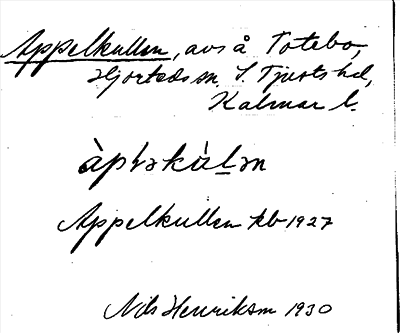 Appelkullen, avs å Totebo,
Hjorteds sn. S. Tjusts hd,
Kalmar l.
àpləkàl̲ən
Appelkullen kb 1927
Nils Henriksm 1930